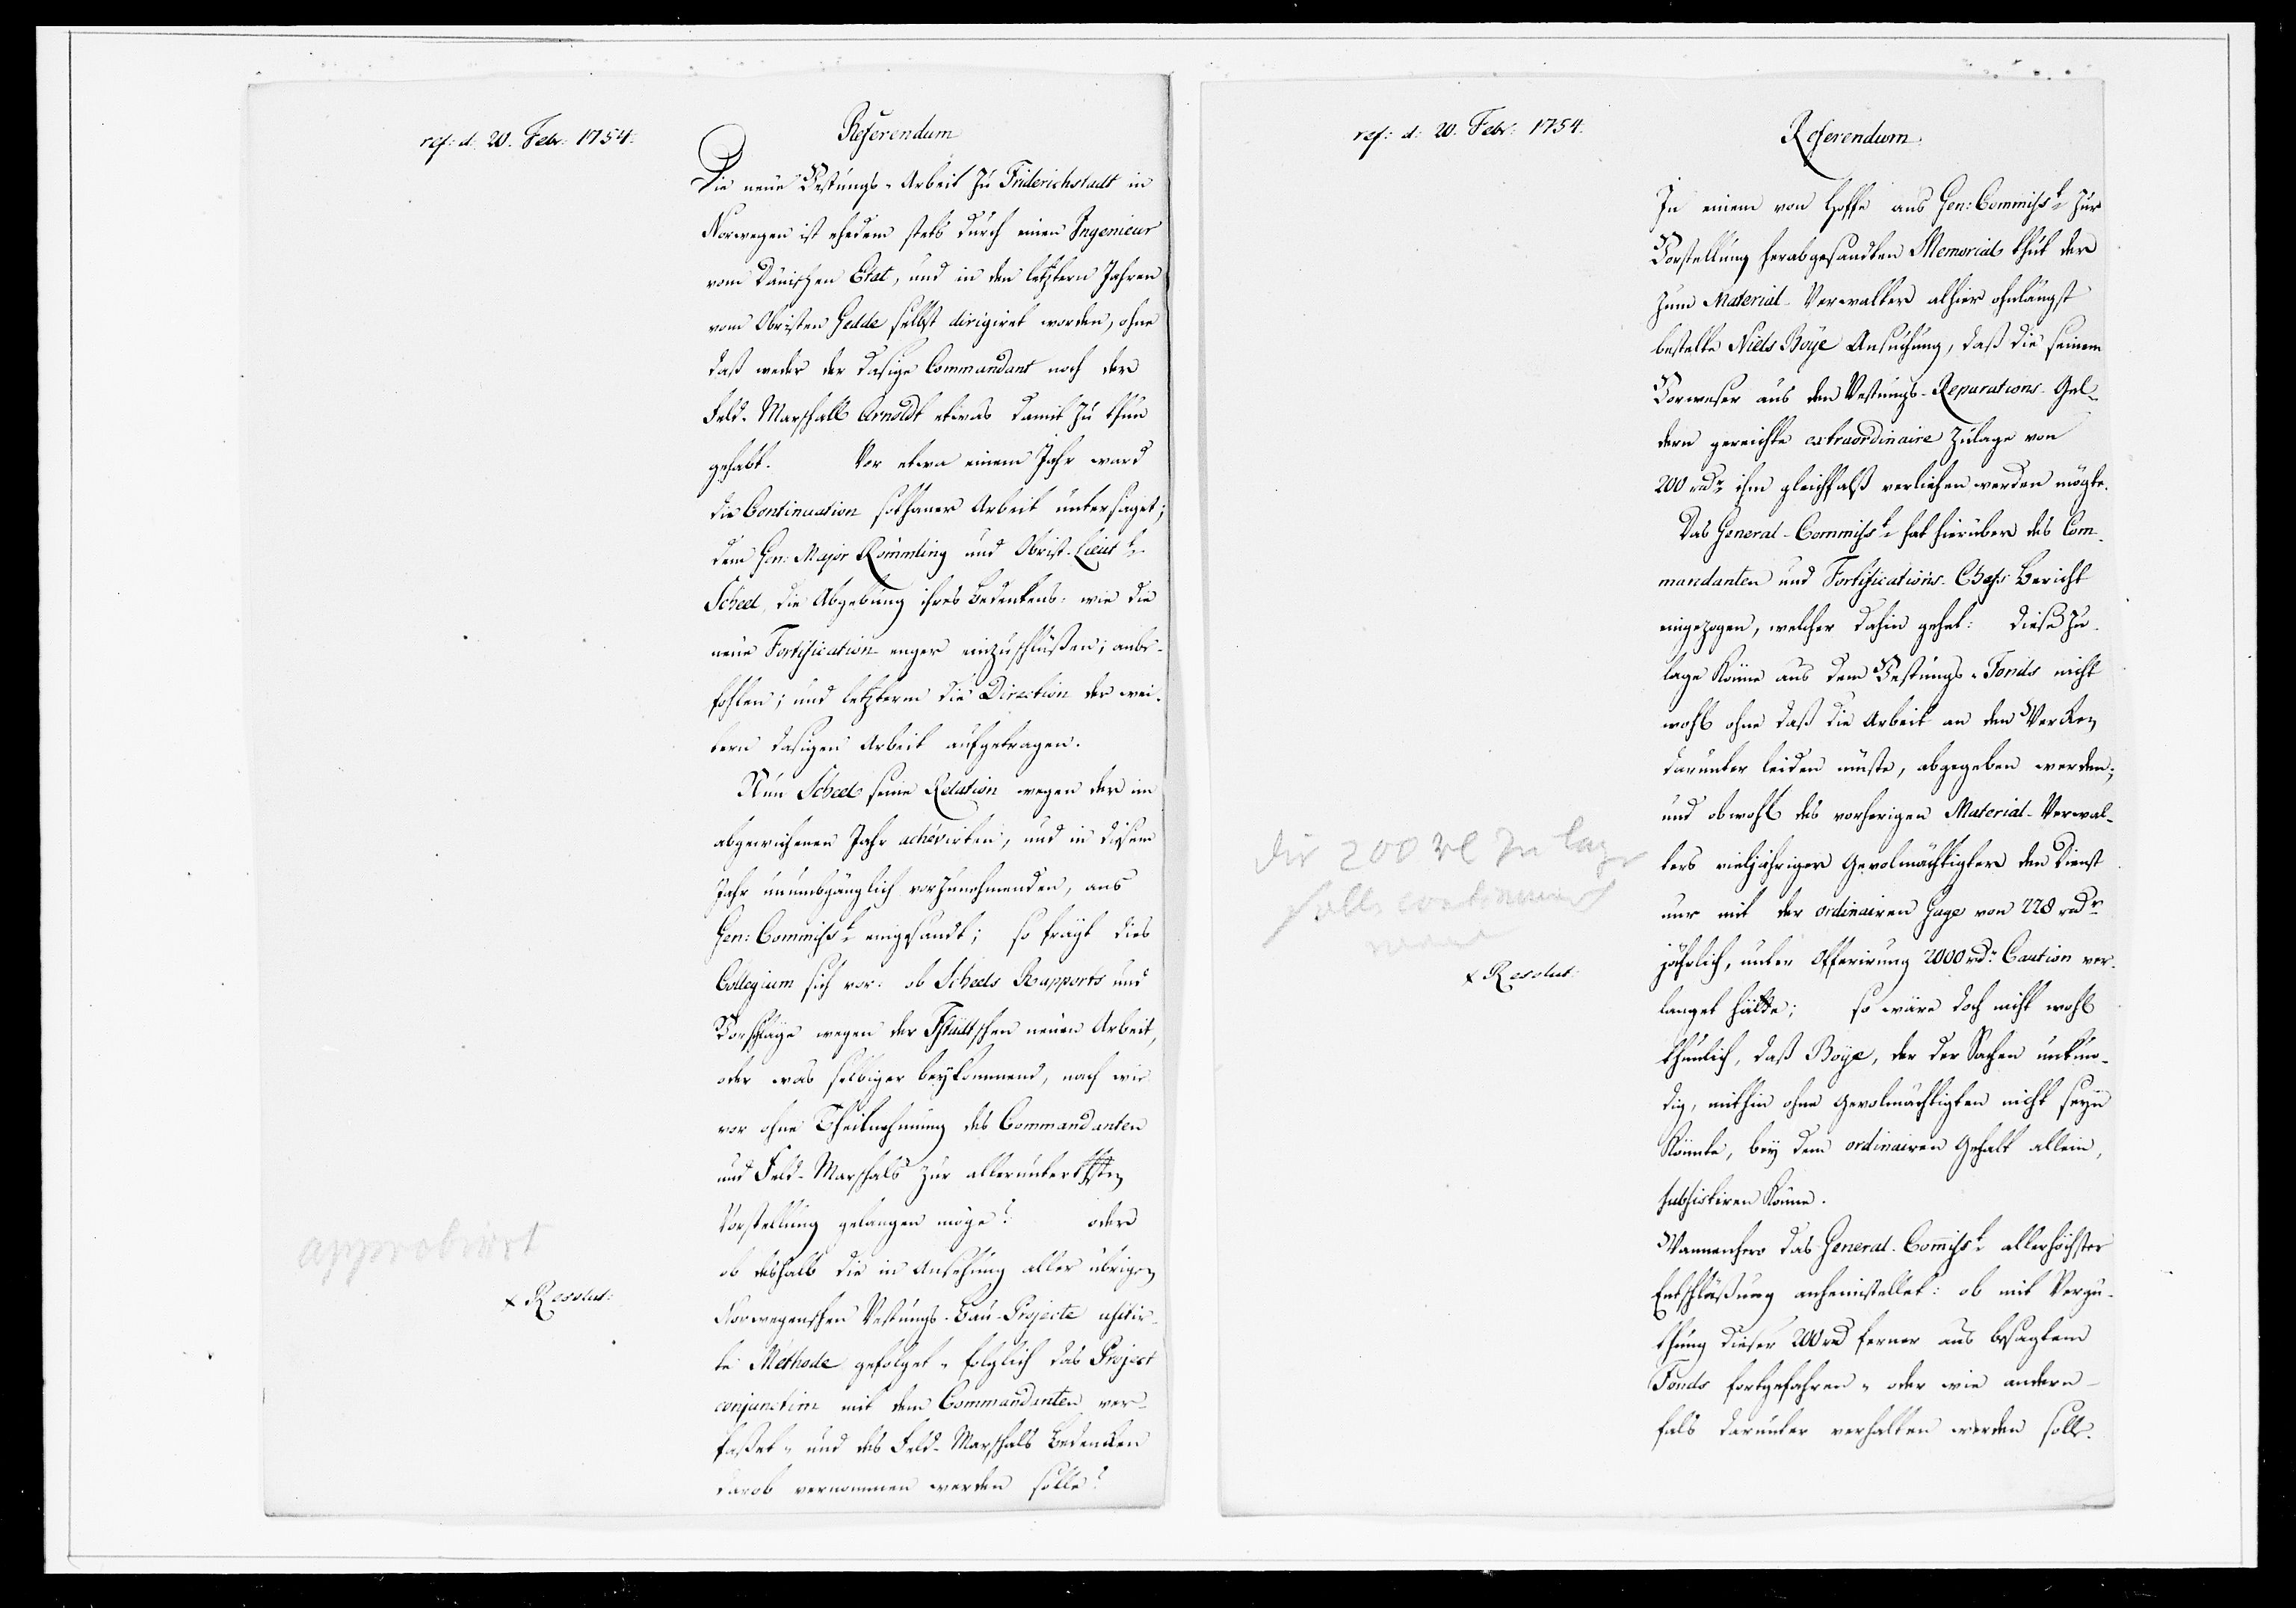 ref: d. 20. Febr: 1754.
Referendum
Die neue Vestungs-Arbeit zu Friderichstadt in
Norwegen ist ehedem stets durch einen Ingenieur
vom Dänischen Etat, und in den letztern Jahren
vom Obristen Gedde selbst dirigiret worden, ohne
daß weder der dasige Commandant noch der
Feld-Marschall Arnoldt etwas damit zu thun
gehabt. Vor etwa einem Jahr ward
die Continuation sothaner Arbeit untersaget;
dem Gen: Major Römmling und Obrist-Lieut
Scheel, die Abgebung ihres Bedenkens: wie die
neue Fortification enger einzuschlüßen; anbe-
fohlen; und letzterm die Direction der wei-
tern dasigen Arbeit aufgetragen.
Nun Scheel seine Relation wegen der im
abgewichenen Jahr achevirten, und in diesem
Jahr unumbgänglich vorzunehmenden, ans
Gen: Commisst eingesandt; so frägt dies
Collegium sich vor: ob Scheels Rapports und
Vorschläge wegen der neuen Arbeit,
oder was selbiger beykommend, nach wie
vor ohne Theilnehmung des Commandanten
und Feld-Marschals zur alleruntert
Vorstellung gelangen möge? oder
ob deshalb die in Ansehung aller übrigen
Norwegenschen Vestungs-Bau-Projecte usitir-
te Methode gefolget, folglich das Project
conjunctim mit dem Commandanten ver-
faßet, und des Feld-Marschals Bedencken
darob vernommen werden solle?
approbirt
x Resolut:
ref: d: 20. Febr: 1754.
Referendum.
In einem von Hoffe ans Gen: Commisst zur
Vorstellung herabgesandten Memorial thut der
zum Material-Verwalter alhier ohnlängst
bestelte Niels Boye Ansuchung, daß die seinem
Vorweser aus den Vestungs-Reparations-Gel-
dern gereichte extraordinaire Zulage von
200 rdr ihm gleichfalß verliehen werden mögte.
Das General-Commisst hat hierüber des Com-
mandanten und Fortifications-Chefs Bericht
eingezogen, welcher dahin gehet: diese Zu-
lage könne aus dem Vestungs-Fonds nicht
wohl ohne daß die Arbeit an den Wercken
darunter leiden müste, abgegeben werden;
und obwohl des vorherigen Material-Verwal-
ters vieljähriger Gevolmächtigter den Dienst
nur mit der ordinairen Gage von 228 rdr
jährlich, unter Offerirung 2000 rdr Caution ver-
langet hätte; so wäre doch nicht wohl
thunlich, daß Boye, der der Sachen unkün-
dig, mithin ohne Gevolmächtigten nicht seyn
könnte, bey dem ordinairen Gehalt allein,
subsistiren könne.
Wannenhero das General-Commisst allerhöchster
Entschlüßung anheimstellet: ob mit Vergü-
thung dieser 200 rd ferner aus besagtem
Fonds fortgefahren, oder wie andern-
fals darunter verhalten werden solle.
die 200 rl zu lage
soll continuirt
x Resolut: